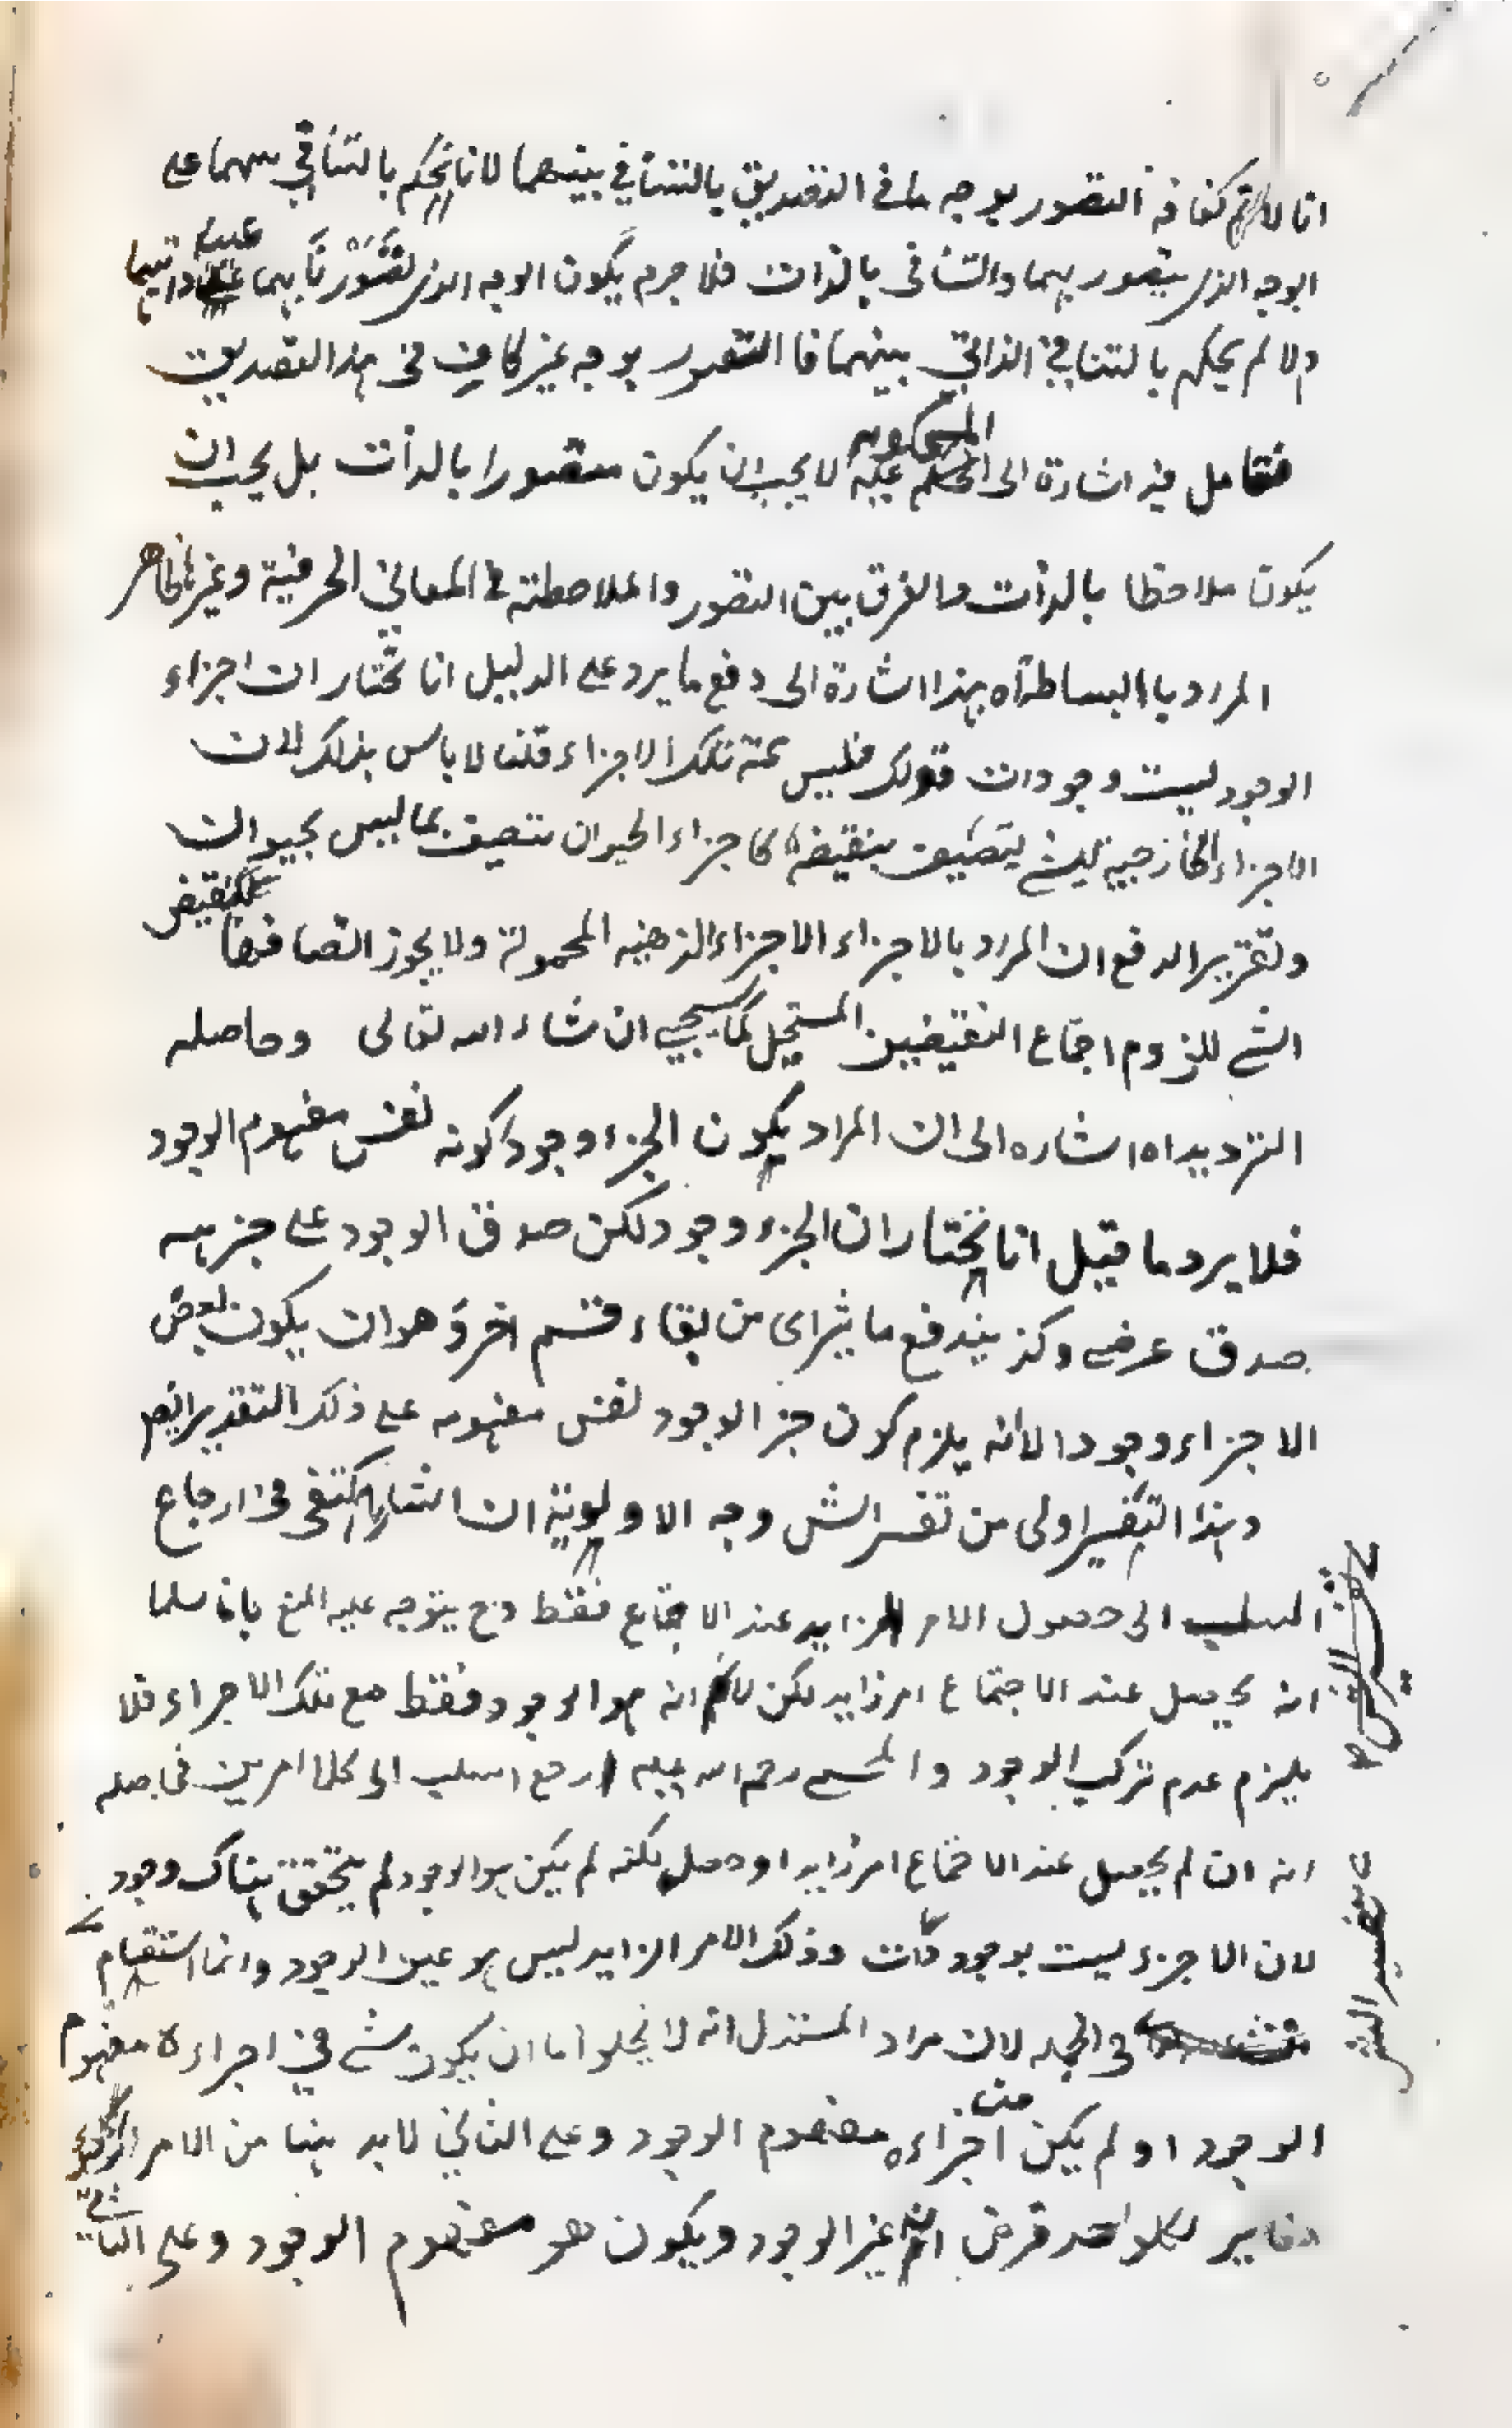 انا لا نم كفاية التصور بوجه ما في التصديق بالتنافي بينهما لانا نحكم بالتنافي بينهما على
الوجه الذي يتصور بهما والتنافي بالذات فلا جرم يكون الوجه الذي تصورنا بهما عين ذاتيهما
والا لم يحكم بالتنافي الذاتي بينهما فا التصور بوجه غير كاف في هذا التصديق
فتامل فيه اشارة الى المحكوم عليه لا يجب ان يكون متصورا بالذات بل يجب ان
يكون ملاحظا بالذات والفرق بين التصور والملاحظة في المعاني الحرفية وغيرها ظاهر
المراد بالبساطة اه بهذا اشارة الى دفع ما يرد على الدليل انا نختار ان اجزاء
الوجود ليست وجودات قولك فليس ثمة تلك الاجزاء قلنا لا باس بذلك لان
الاجزاء الخارجية لشئ يتصف بنقيضه كاجزاء الحيوان تتصف بما ليس بحيوان
وتقرير الدفع ان المراد بالاجزاء الاجزاء الذهنيه المحمولة ولا يجوز اتصافها بنقيض
الشئ للزوم اجتماع النقيضين المستحيل كما سيجيئ ان شاء الله تعالى وحاصله
الترديد اه اشاره الى ان المراد بكون الجزء وجودا كونه نفس مفهوم الوجود
فلا يرد ما قيل انا نختار ان الجزء وجود لكن صدق الوجود على جزئه
صدق عرضي وكذ يندفع ما يترأى من بقاء قسم اخر وهو ان يكون بعض
الاجزاء وجودا لانه يلزم كون جز الوجود نفس مفهومه على ذلك التقدير ايض
وهذا التفسير اولى من تفسير الش وجه الاولوية ان الشارح اكتفى في ارجاع
السلب الى حصول الامر الزايد عند الاجتماع فقط وح يتوجه عليه المنع بانا سلمنا
انه يحصل عند الاجتماع امر زايد لكن لا نم انه هو الوجود فقط مع تلك الاجراء فلا
يلزم عدم تركب الوجود والمحشي رحمه الله عليه ارجع السلب الى كلا امرين فحاصله
انه ان لم يحصل عند الاجتماع امر زايد او حصل لكنه لم يكن هو الوجود لم يتحقق هناك وجود
لان الاجزء ليست بوجودات وذلك الامر الزايد ليس هو عين الوجود وانما استقام
في الجمله لان مراد المستدل انه لا يخلو اما ان يكون شئ في اجراءه مفهوم
الوجود او لم يكن من اجزاءه مفهوم الوجود وعلى الثاني لابد هنا من الامر
مغاير لكل واحد فرض انه غير الوجود ويكون هو مفهوم الوجود وعلى
تفسير الش